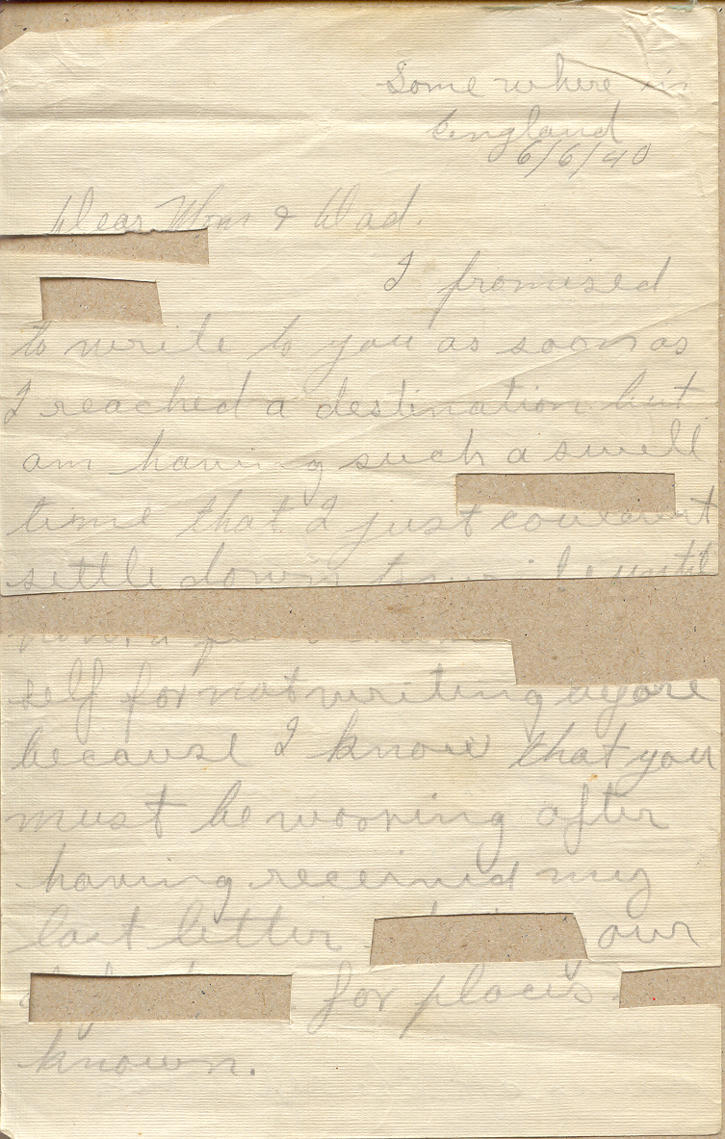 Some where in
England
6/6/40
Dear Mom & Dad.
I promised
to write to you as soon as
I reached a destination but
am having such a swell
time that I just
settle down to write until
self for not writing
because I know that you
must be worring after
having received my
last letter our
for places
known.